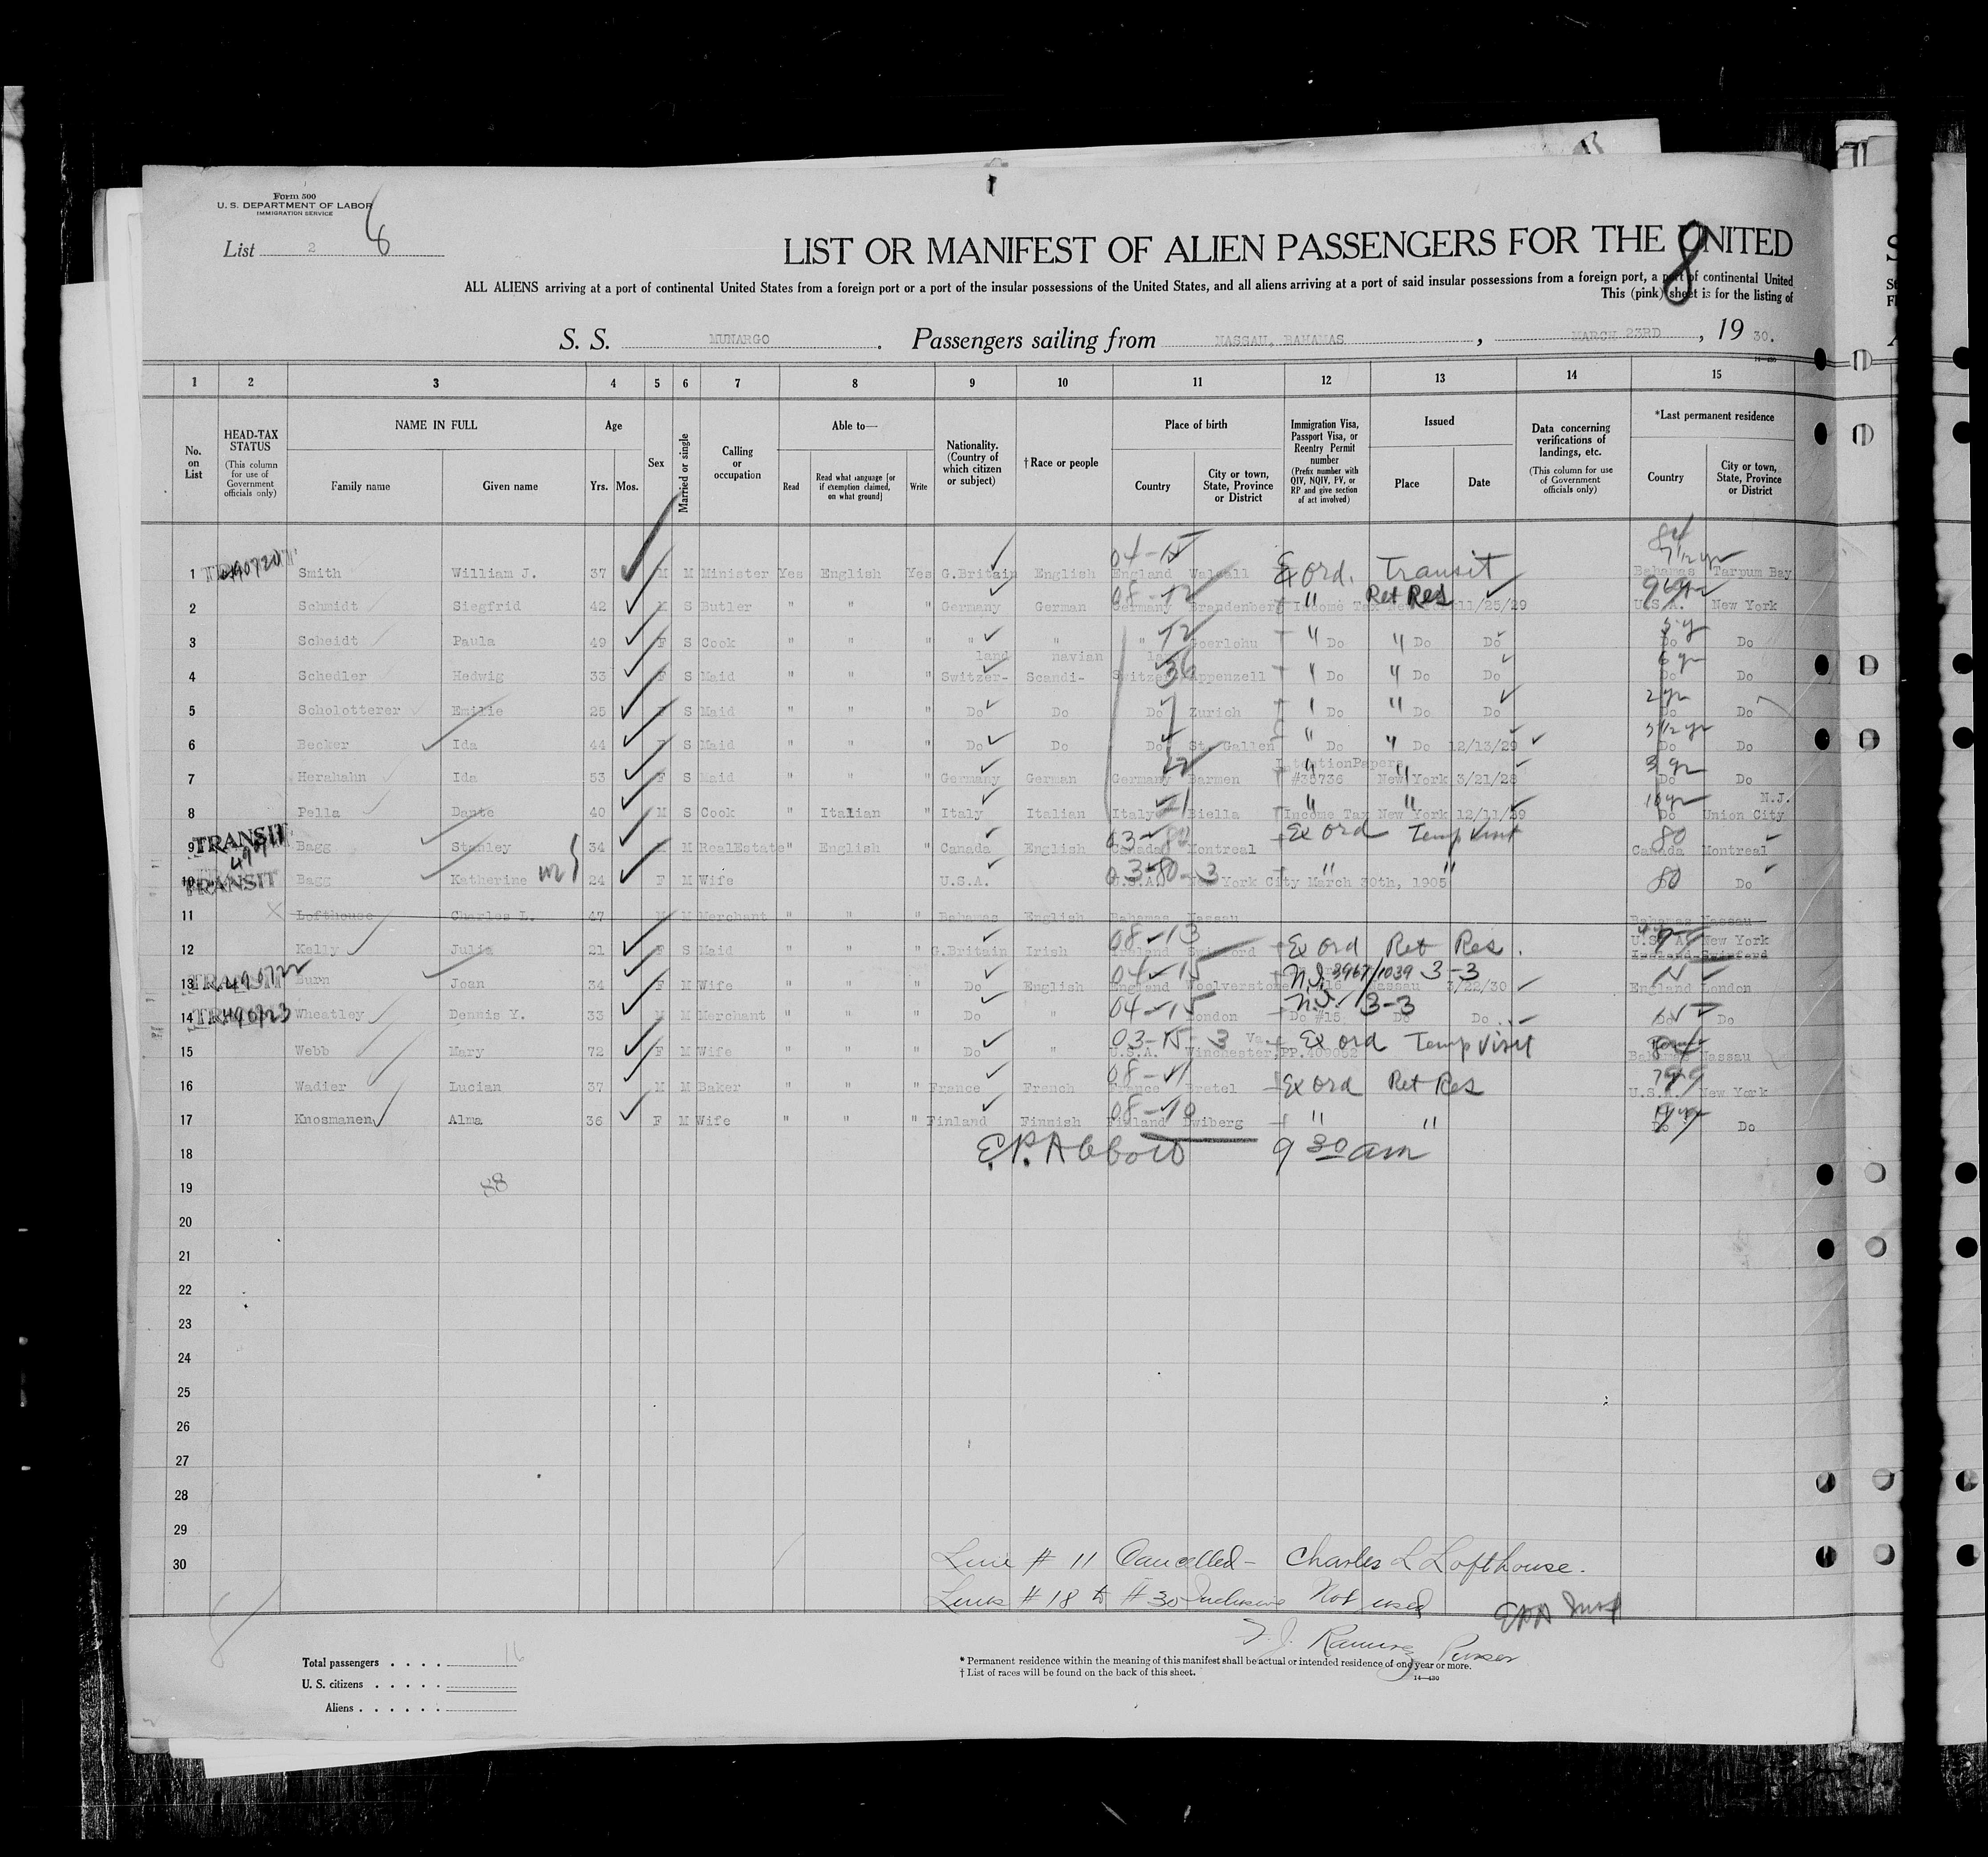 Form 500
U. S. DEPARTMENT OF LABOR
IMMIGRATION SERVICE
List 2 6
8
LIST OR MANIFEST OF ALIEN PASSENGERS FOR THE UNITED
ALL ALIENS arriving at a port of continental United States from a foreign port or a port of the insular possessions of the United States, and all aliens arriving at a port of said insular possessions from a foreign port, a port of continental United
This (pink) sheet is for the listing of
S. S. MUNARGO. Passengers sailing from NASSAU, BAHAMAS, MARCH 23RD, 19 30.
14—430
1 2 3 4 5 6 7 8 9 10 11 12 13 14 15
No. on List
HEAD-TAX STATUS (This column for use of Government officials only)
NAME IN FULL Family name Given name
Age Yrs. Mos.
Sex
Married or single
Calling or occupation
Able to— Read Read what language [or if exemption claimed, on what ground] Write
Nationality. (Country of which citizen or subject)
†Race or people
Place of birth Country City or town, State, Province or District
Immigration Visa, Passport Visa, or Reentry Permit number (Prefix number with QIV, NQIV, PV, or RP and give section of act involved)
Issued Place Date
Data concerning verifications of landings, etc. (This column for use of Government officials only)
*Last permanent residence Country City or town, State, Province or District
1 Smith William J. 37 M M Minister Yes English Yes G.Britain English England Walsall Ex ord. Transit Bahamas Tarpum Bay
2 Schmidt Siegfrid 42 M S Butler " " " Germany German Germany Brandenberg Income Tax " Ret Res 11/25/29 U.S.A. New York
3 Scheidt Paula 49 F S Cook " " " " " " " Do " Do Do Do Do
4 Schedler Hedwig 33 F S Maid " " " Switzer-land Scandi-navian Switzer-land Appenzell " Do " Do Do 6 yr Do Do
5 Scholotterer Emilie 25 F S Maid " " " Do Do Do Zurich " Do " Do Do 2 yr Do Do
6 Becker Ida 44 F S Maid " " " Do Do Do St. Gallen " Do " Do 12/13/29 Do Do
7 Herahahn Ida 53 F S Maid " " " Germany German Germany Barmen IntentionPapers #36736 New York 3/21/28 Do Do
8 Pella Dante 40 M S Cook " Italian " Italy Italian Italy Biella Income Tax New York 12/11/29 10 yr Do Union City N.J.
TRANSIT
9 Bagg Stanley 34 M M RealEstate " English " Canada English Canada Montreal Ex ord Temp Visit 80 Canada Montreal
TRANSIT
10 Bagg Katherine 24 F M Wife U.S.A. 03-80-3 U.S.A. New York City March 30th, 1905 " " 80 Do
11 Lofthouse Charles L. 47 M M Merchant " " " Bahamas English Bahamas Nassau Bahamas Nassau
12 Kelly Julia 21 F S Maid " " " G.Britain Irish 08-13 Ex ord Ret Res. U.S.A. New York
TRANSIT 490722
13 Burn Joan 34 F M Wife " " " Do English 04-15 England Woolverstone Nassau 3/22/30 3-3 England London
14 Wheatley Dennis Y. 33 M M Merchant " " " Do " 04-15 London Do #15 Do Do 3-3 Do Do
15 Webb Mary 72 F M Wife " " " Do " 03-15-3 U.S.A. Winchester, Va. PP.409052 Ex ord Temp Visit Bahamas Nassau
16 Wadier Lucian 37 M M Baker " " " France French France Bretel Ex ord Ret Res U.S.A. New York
17 Knosmanen Alma 36 F M Wife " " " Finland Finnish Finland Dwiberg " " Do Do
18 E.P. Abbott 9 30 am
19 88
20
21
22
23
24
25
26
27
28
29
30 Line # 11 Cancelled — Charles L Lofthouse.
Lines # 18 to # 30 Inclusive Not used
Purser
Total passengers . . . . 16
U. S. citizens . . . . .
Aliens . . . . . .
* Permanent residence within the meaning of this manifest shall be actual or intended residence of one year or more.
† List of races will be found on the back of this sheet.
14—430